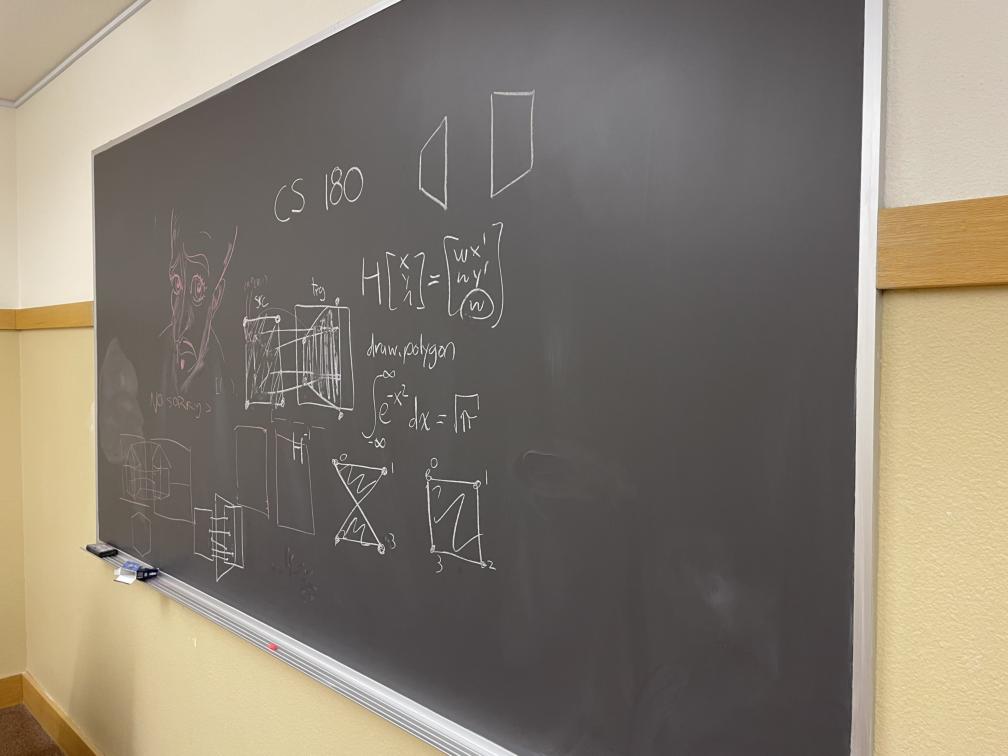 CS 180
H [x y 1] = [wx' wy' w]
src
trg
draw.polygon
∫_{-∞}^{∞} e^{-x²} dx = √π
NO SORRY
H⁻¹
0 1
3
0 1
3 2